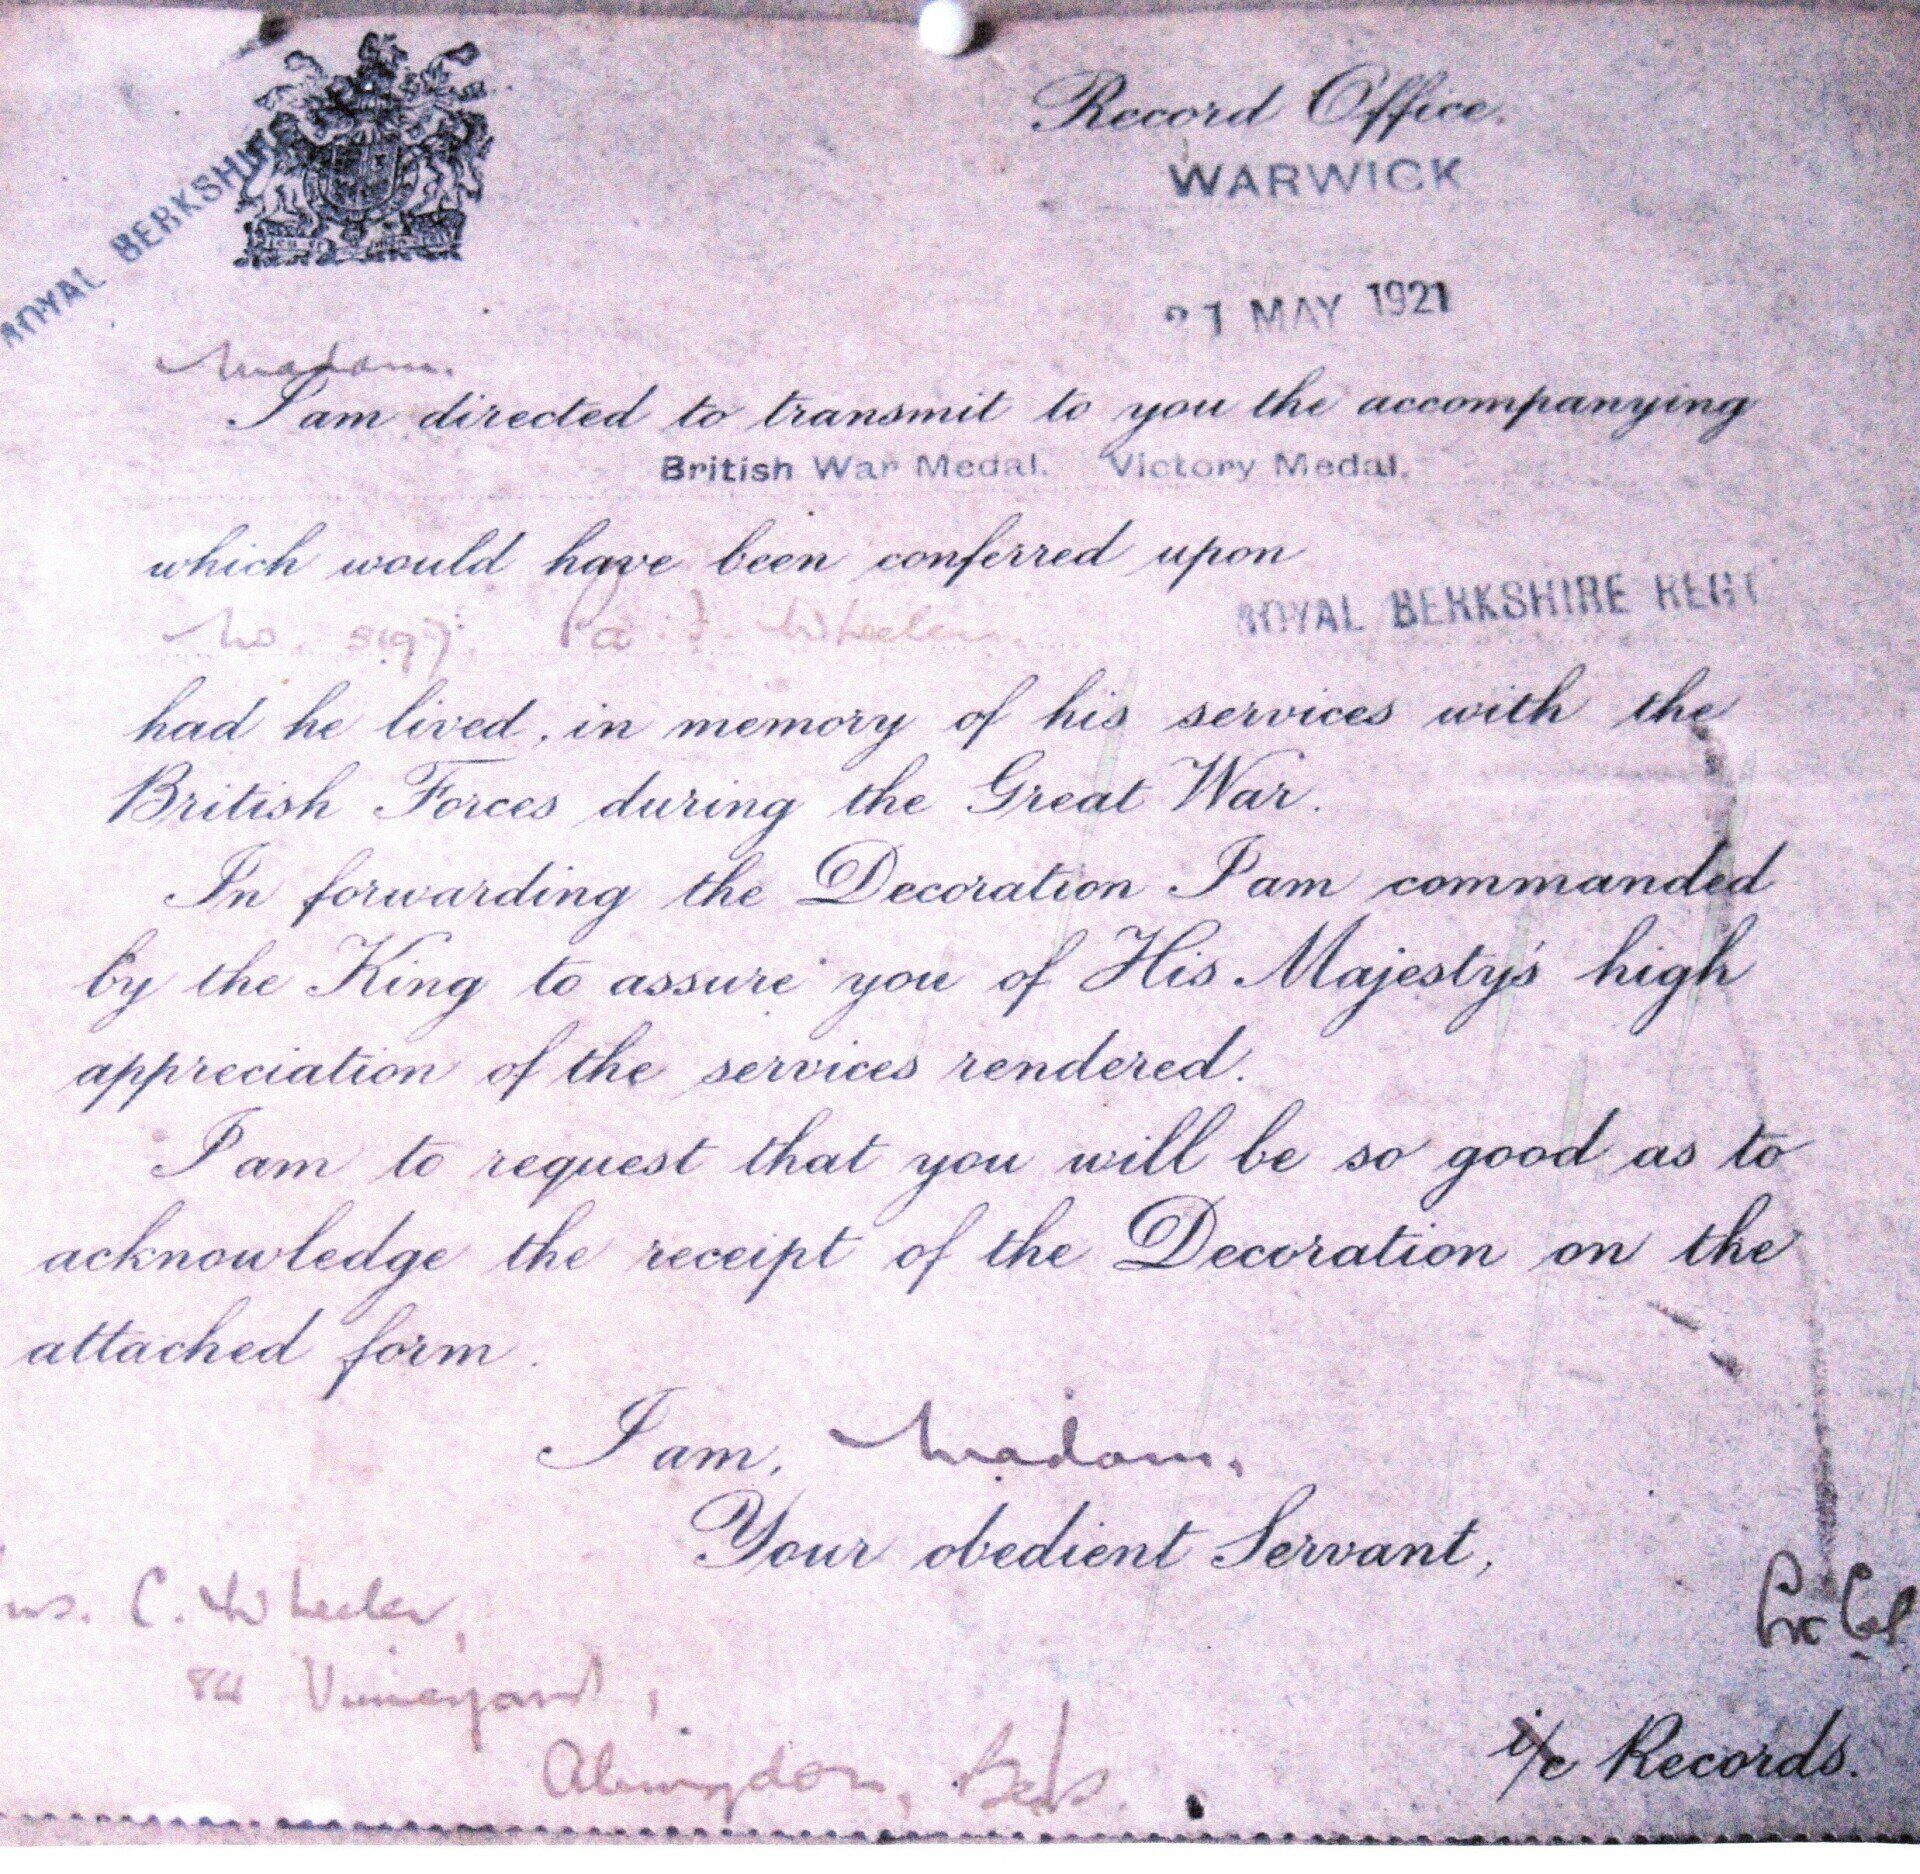 Record Office.
WARWICK
ROYAL BERKSHIRE
21 MAY 1921
Madam.
I am directed to transmit to you the accompanying
British War Medal. Victory Medal.
which would have been conferred upon
No. 8197. Wheeler. ROYAL BERKSHIRE REGT
had he lived, in memory of his services with the
British Forces during the Great War.
In forwarding the Decoration I am commanded
by the King to assure you of His Majesty's high
appreciation of the services rendered.
I am to request that you will be so good as to
acknowledge the receipt of the Decoration on the
attached form.
I am, Madam,
Your obedient Servant,
C. Wheeler,
84 Vineyard,
Abingdon, Berks.
i/c Records.